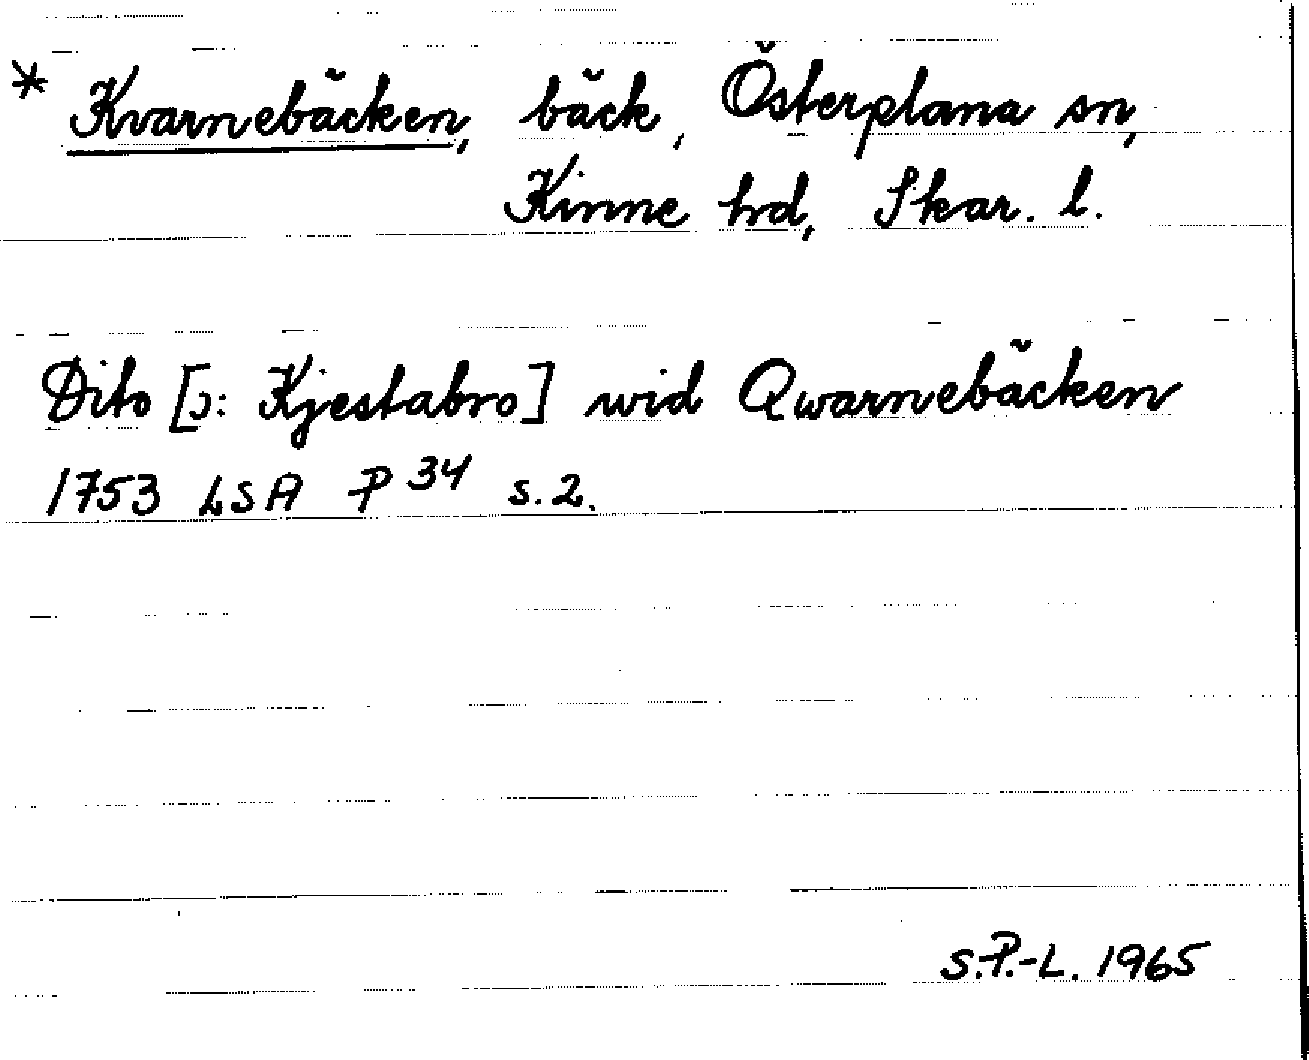 * Kvarnebäcken, bäck, Österplana sn,
Kinne hrd, Skar. l.
Dito [ɔ: Kjestabro] wid Qwarnebäcken
1753 LSA P 34 s. 2.
S.P.-L. 1965